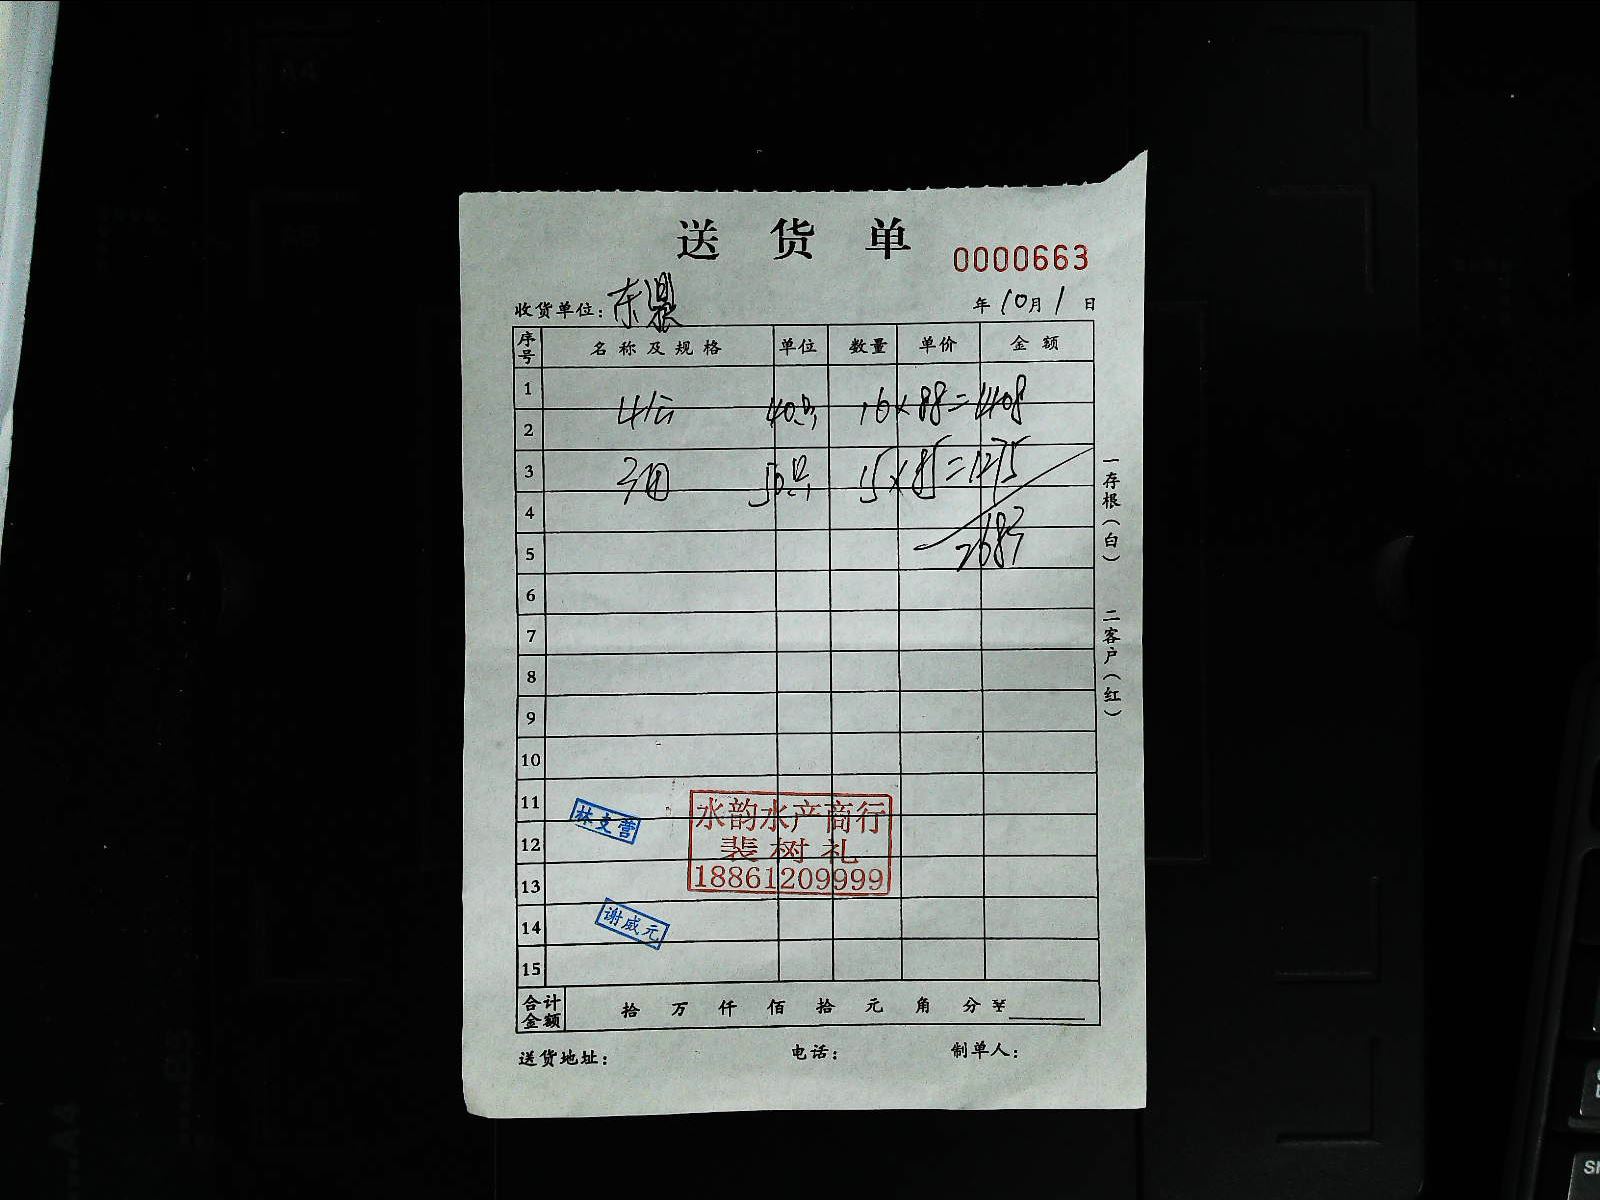 送货单
0000663
收货单位：东鼎 年10月1日
序号 名称及规格 单位 数量 单价 金额
1
4公 40只 16×88=1408
2
3 3母 50只 15×85=1275
4
2683
5
6
7
8
9
10
11
12
13
14
15
林支营
水韵水产商行
裴树礼
18861209999
谢威元
合计金额 拾 万 仟 佰 拾 元 角 分 ¥
送货地址： 电话： 制单人：
一存根（白） 二客户（红）